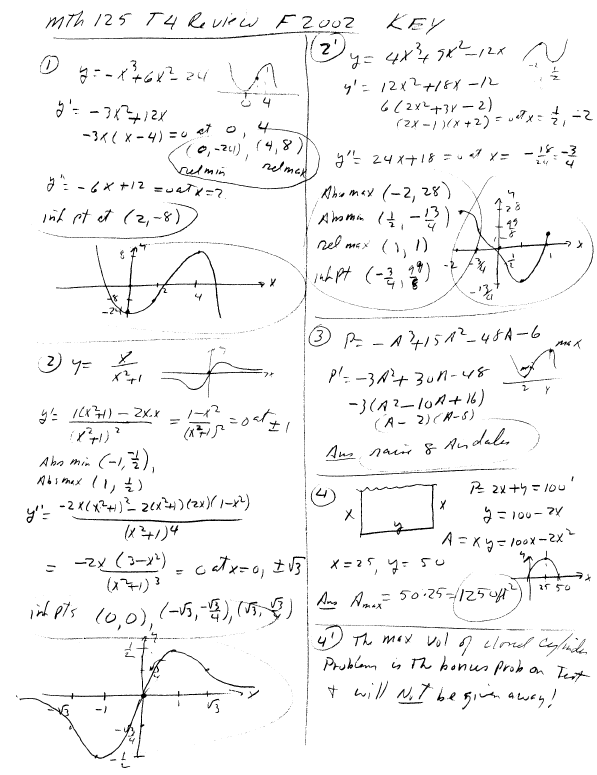 Mth 125 T4 Review F2002 KEY
① y = -x³+6x²-24
0 4
y' = -3x²+12x
-3x(x-4)=0 at 0, 4
(0,-24), (4,8)
rel min rel max
y'' = -6x+12 = 0 at x=2
inf pt at (2,-8)
8 y
2 4 x
-8
-24
② y = x/(x²+1)
y' = (1(x²+1) - 2x·x)/(x²+1)² = (1-x²)/(x²+1)² = 0 at ±1
Abs min (-1, -1/2),
Abs max (1, 1/2)
y'' = (-2x(x²+1)² - 2(x²+1)(2x)(1-x²))/(x²+1)⁴
= -2x(3-x²)/(x²+1)³ = 0 at x=0, ±√3
inf pts (0,0), (-√3, -√3/4), (√3, √3/4)
1/2 y
√3/4
-√3 -1 1 √3 x
-√3/4
-1/2
②' y = 4x³+9x²-12x
-1 1/2
y' = 12x²+18x-12
6(2x²+3x-2)
(2x-1)(x+2) = 0 at x = 1/2, -2
y'' = 24x+18 = 0 at x = -18/24 = -3/4
Abs max (-2, 28)
Abs min (1/2, -13/4)
rel max (1, 1)
inf pt (-3/4, 99/8)
y
28
99/8
-2 -3/4 1/2 1 x
-13/4
③ P = -A³+15A²-48A-6
max
P' = -3A²+30A-48
-3(A²-10A+16)
(A-2)(A-8)
Ans raise 8 Airdales
④ x y x
P = 2x+y = 100'
y = 100-2x
A = xy = 100x-2x²
x = 25, y = 50
25 50 x
Ans Amax = 50·25 = 1250 ft²
④' The max vol of closed cylinder
Problem is the bonus prob on Test
+ will NOT be given away!